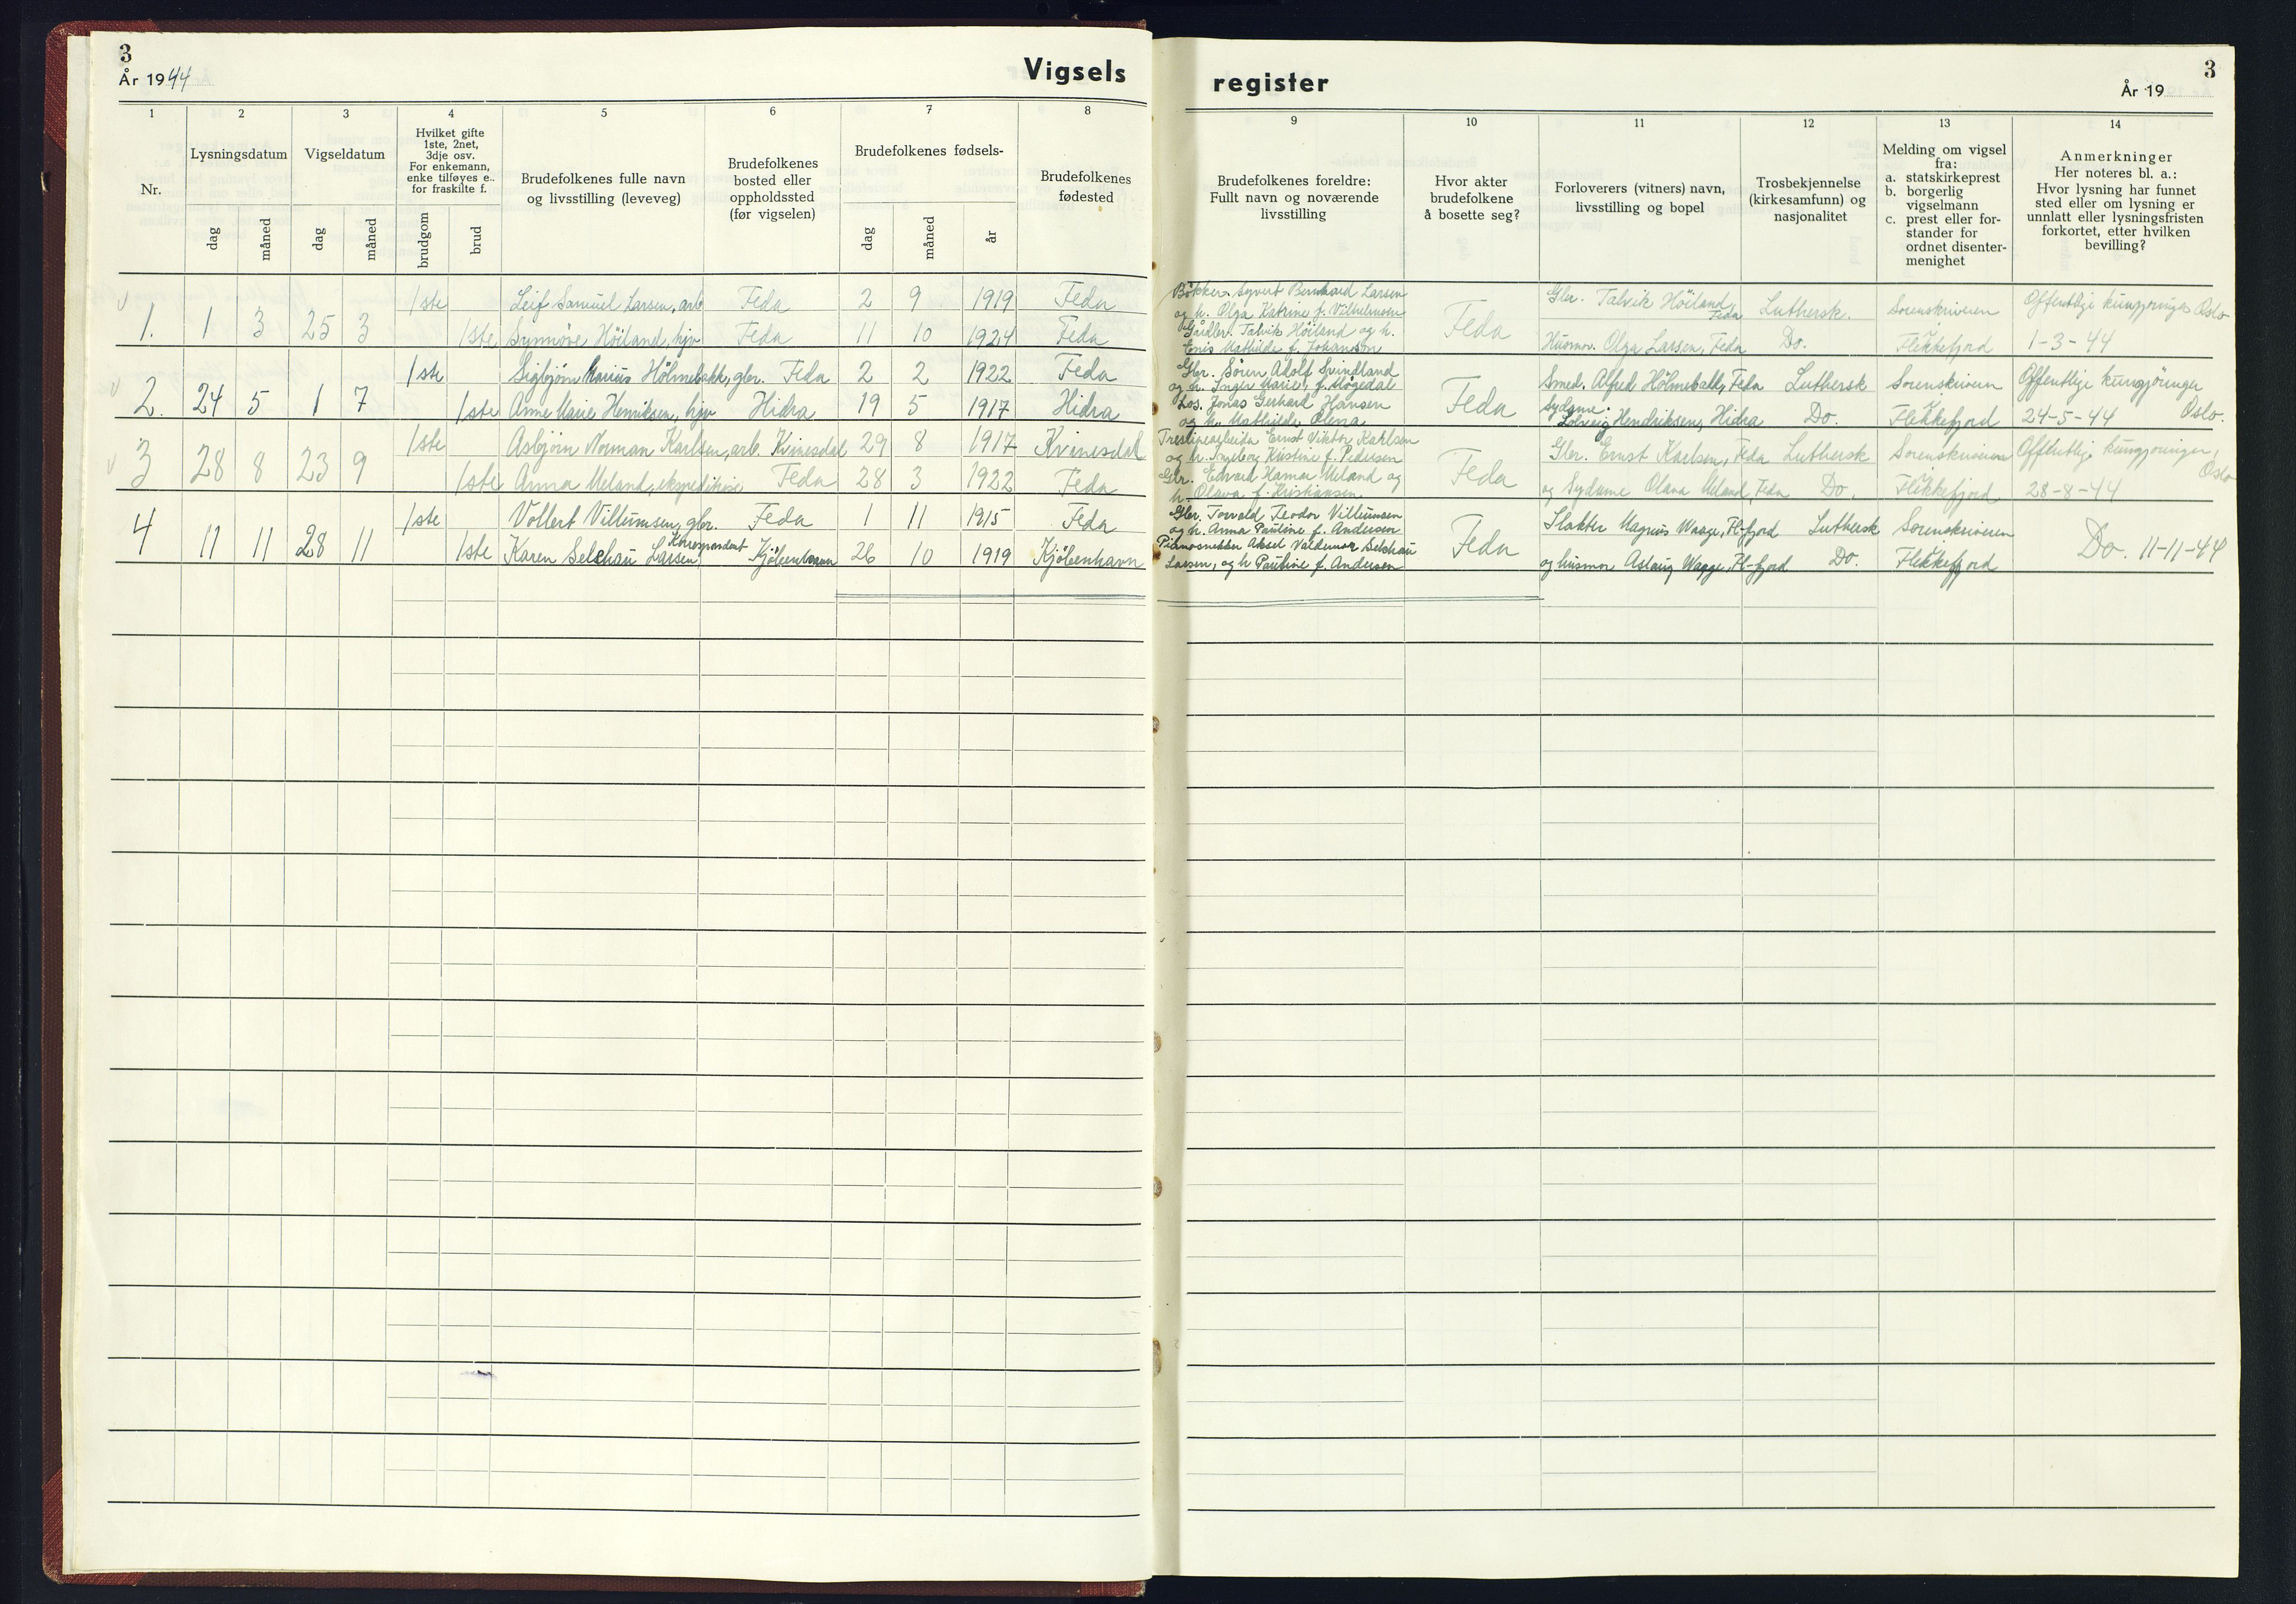 3
År 1944
Vigsels
register
3
År 19
1
2
3
4
5
6
7
8
9
10
11
12
13
14
Nr.
Lysningsdatum
dag
måned
Vigseldatum
dag
måned
Hvilket gifte
1ste, 2net,
3dje osv.
For enkemann,
enke tilføyes e..
for fraskilte f.
brudgom
brud
Brudefolkenes fulle navn
og livsstilling (leveveg)
Brudefolkenes
bosted eller
oppholdssted
(før vigselen)
Brudefolkenes fødsels-
dag
måned
år
Brudefolkenes
fødested
Brudefolkenes foreldre:
Fullt navn og noværende
livsstilling
Hvor akter
brudefolkene
å bosette seg?
Forloverers (vitners) navn,
livsstilling og bopel
Trosbekjennelse
(kirkesamfunn) og
nasjonalitet
Melding om vigsel
fra:
a. statskirkeprest
b. borgerlig
vigselmann
c. prest eller for-
stander for
ordnet disenter-
menighet
Anmerkninger
Her noteres bl. a.:
Hvor lysning har funnet
sted eller om lysning er
unnlatt eller lysningsfristen
forkortet, etter hvilken
bevilling?
1. 1 3 25 3
1ste Leif Samuel Larsen, arb Feda 2 9 1919 Feda
1ste Synnöve Höiland, hjv Feda 11 10 1924 Feda
Bökker. Syvert Bernhard Larsen
og h. Olga Katrine f. Vilhelmsen
Gårdbr. Talvik Höiland og h.
Enis Mathilde f. Johanson
Feda
Gbr. Talvik Höiland, Feda
Husmor. Olga Larsen, Feda
Luthersk.
Do.
Sorenskriveren
Flekkefjord
Offentlige kungjöringer Oslo
1-3-44
2. 24 5 1 7
1ste Sigbjörn Marius Hölmebakk, gbr. Feda 2 2 1922 Feda
1ste Anne Marie Henriksen, hjv Hidra 19 5 1917 Hidra
Gbr. Sören Adolf Svindland
og h. Inger Marie, f. Mögedal
Los. Jonas Gerhard Hansen
og h. Mathilde Olena
Feda
Smed. Alfred Hölmebakk, Feda
Sydame.
Solveig Hendriksen, Hidra
Luthersk
Do.
Sorenskriveren
Flekkefjord
Offentlige kungjöringer
24-5-44 Oslo.
3 28 8 23 9
1ste Asbjörn Norman Karlsen, arb. Kvinesdal 29 8 1917 Kvinesdal
1ste Anna Meland, ekspeditrise Feda 28 3 1922 Feda
Ernst Viktor Karlsen
og h. Ingeborg Kristine f. Pedersen
Gbr. Edvard Kamar Meland og
h. Olava f. Kristiansen
Feda
Gbr. Ernst Karlsen, Feda
og Sydame Olava Meland, Feda
Luthersk
Do.
Sorenskriveren
Flekkefjord
Offentlige kungjöringer,
Oslo
28-8-44
4 11 11 28 11
1ste Vollert Villumsen, gbr. Feda 1 11 1915 Feda
Korrespondent
1ste Karen Selchau Larsen, Kjöbenhavn 26 10 1919 Kjöbenhavn
Gbr. Torvald Teodor Villumsen
og h. Anna Pauline f. Andersen
Pianosnekker Aksel Valdemar Selchau
Larsen, og h Pauline f. Andersen
Feda
Slakter Magnus Waage, Fl-fjord
og husmor Aslaug Waage, Fl-fjord
Luthersk
Do.
Sorenskriveren
Flekkefjord
Do. 11-11-44